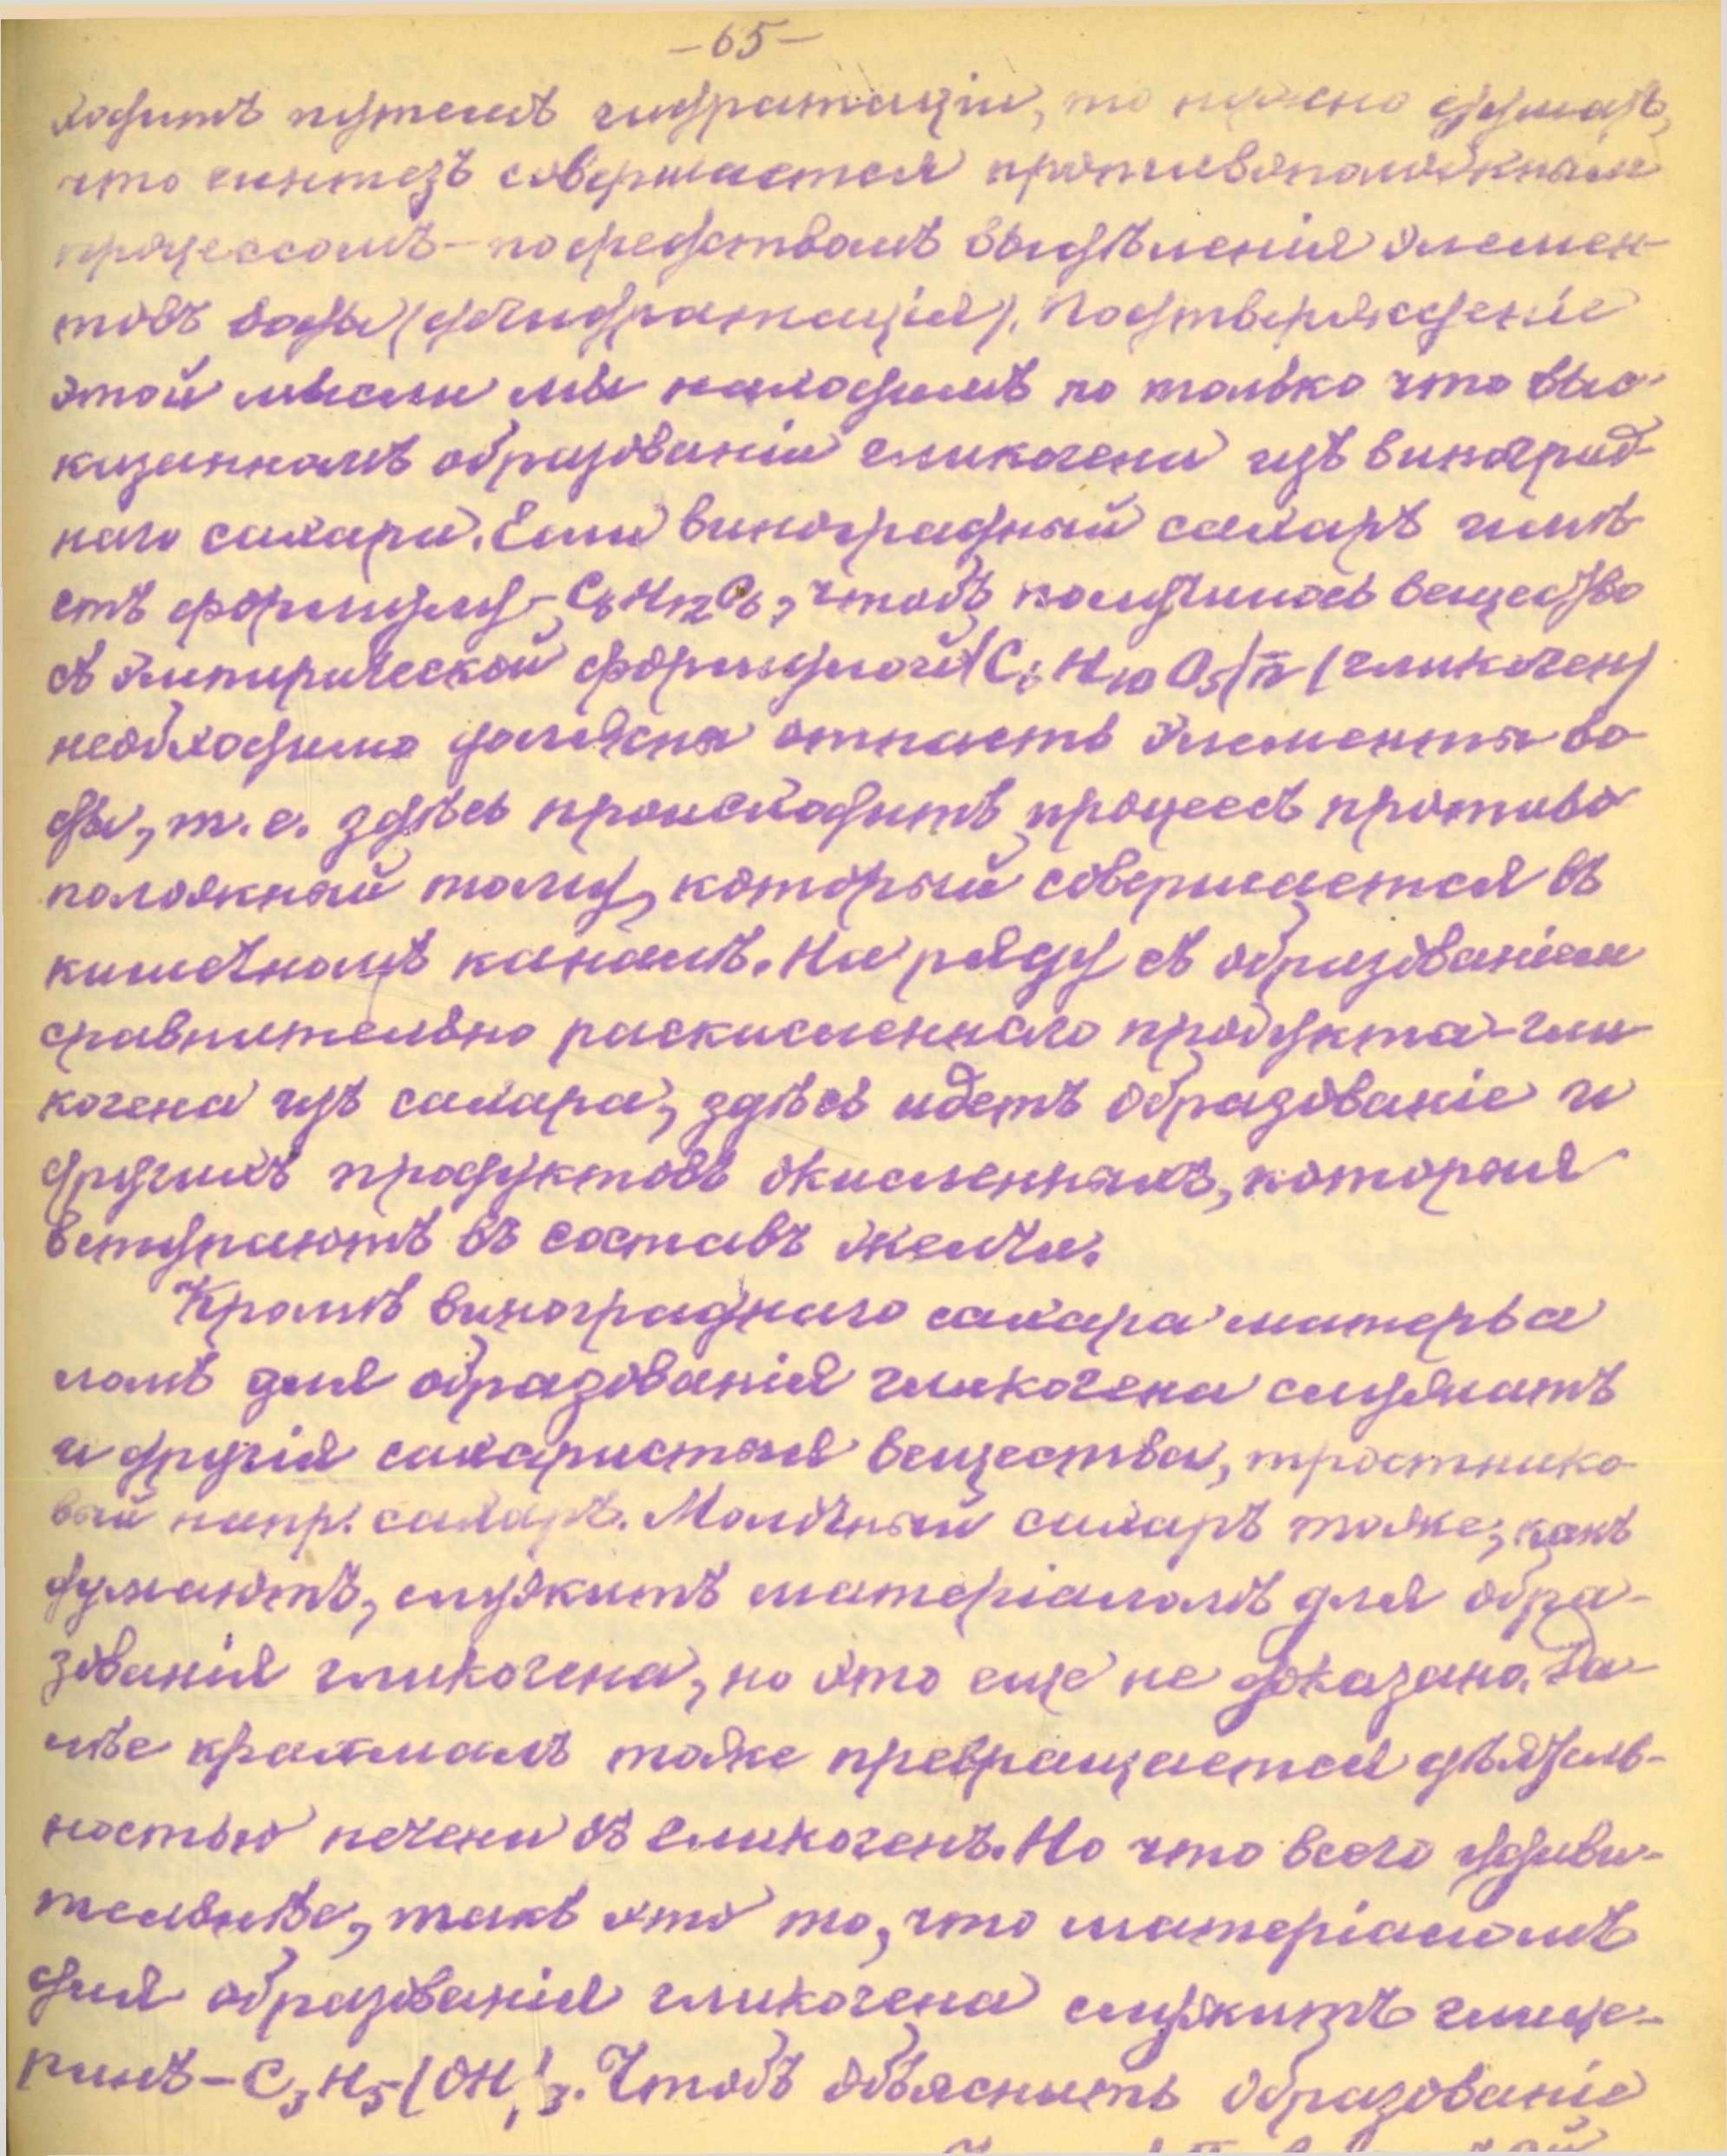 -65-
ходитъ путемъ гидратаціи, то нужно думать,
что синтезъ совершается противоположнымъ
процессомъ-посредствомъ выдѣленія элемен-
товъ воды (дегидратація). Подтвержденіе
этой мысли мы находимъ по только что выс-
казанномъ образованіи гликогена изъ виноград-
наго сахара. Если виноградный сахаръ имѣ-
етъ формулу-C6H12O6, чтобъ получилось вещество
съ эмпирической формулой (C6H10O5)n (гликоген)
необходимо должна отпасть элементы во-
ды, т.е. здѣсь происходитъ процессъ противо
положный тому, который совершается въ
кишечномъ каналѣ. На ряду съ образованіем
сравнительно раскисленнаго продукта-гли-
когена изъ сахара, здѣсь идетъ образованіе и
другихъ продуктовъ окисленныхъ, которыя
вступаютъ въ составъ желчи.
Кромѣ винограднаго сахара матерьа
ломъ для образованія гликогена служатъ
и другія сахаристыя вещества, тростнико-
вый напр. сахаръ. Молочный сахаръ тоже, какъ
думаютъ, служитъ матеріаломъ для обра-
зованія гликогена, но это еще не доказано. Да-
лѣе крахмалъ тоже превращается дѣятель-
ностью печени въ гликогенъ. Но что всего удиви-
тельнѣе, такъ это то, что матеріаломъ
для образованія гликогена служитъ глице-
ринъ-C3H5(OH)3. Чтобъ объяснить образованіе